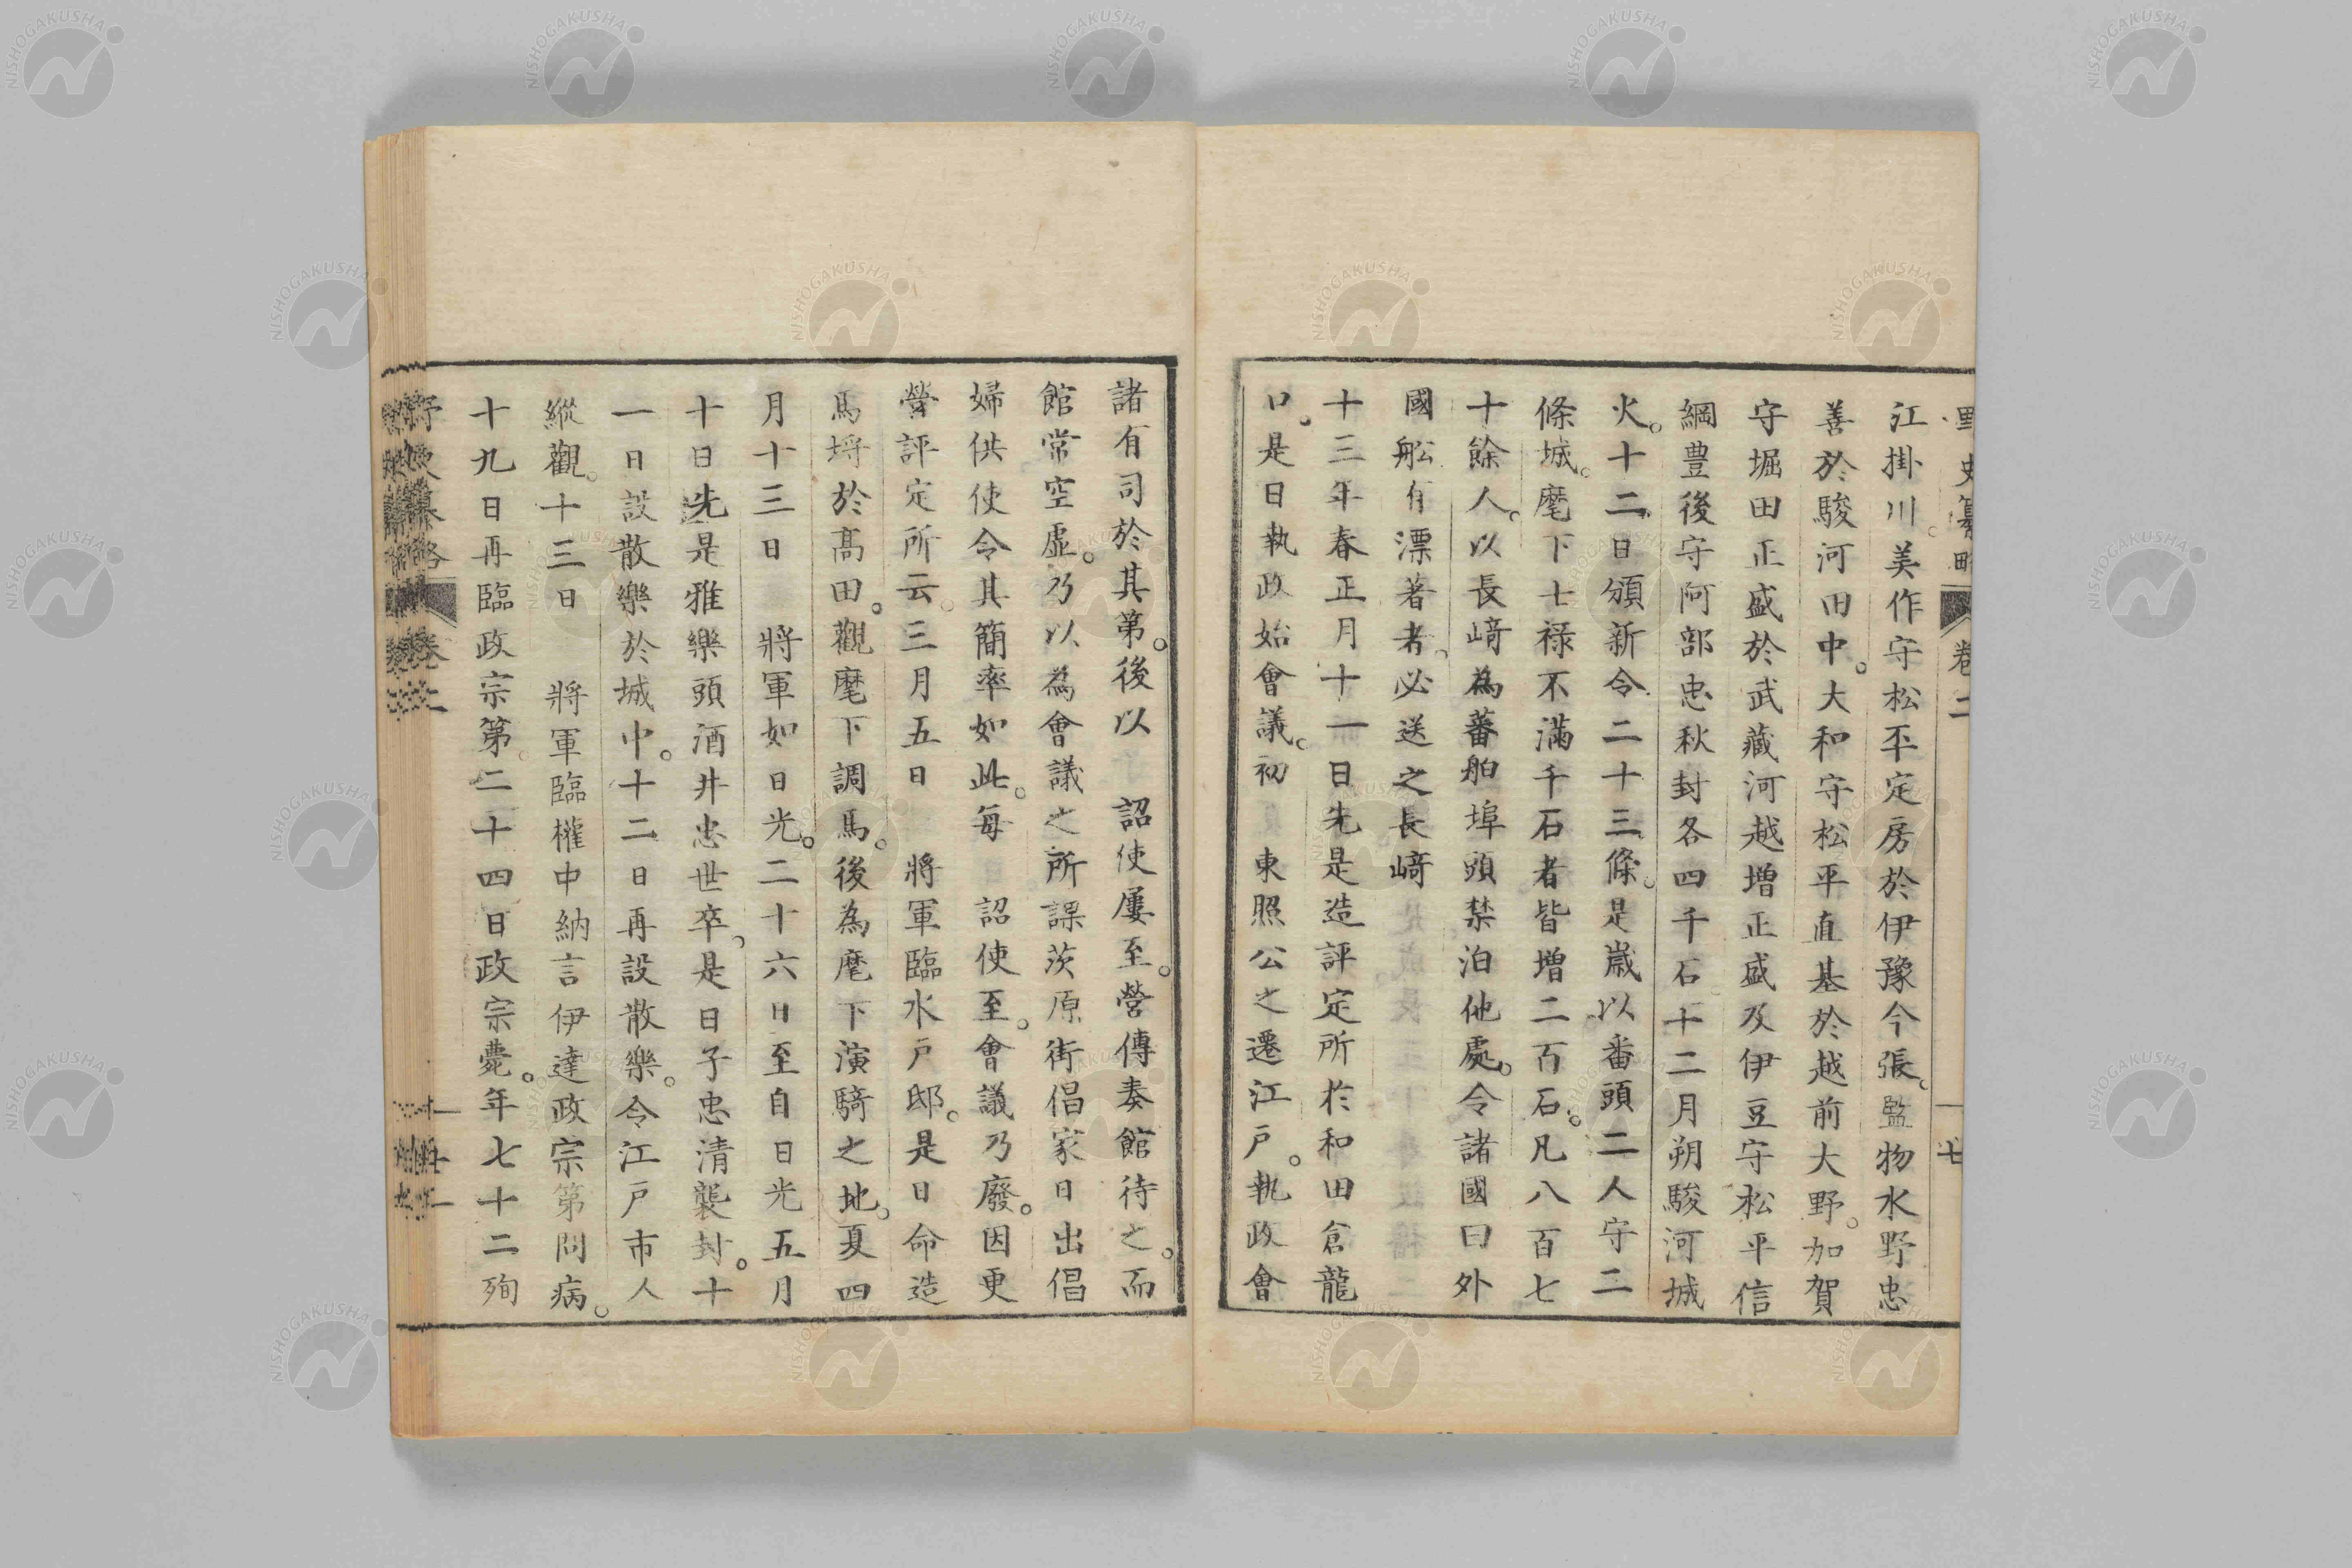 野史纂略 卷二 十七
江掛川美作守松平定房於伊豫今張。監物水野忠
善於駿河田中。大和守松平直基於越前大野。加賀
守堀田正盛於武藏河越增正盛及伊豆守松平信
綱豊後守阿部忠秋封各四千石十二月朔駿河城
火。十二日頒新令二十三條。是歲以番頭二人守二
條城。麾下士祿不滿千石者皆增二百石。凡八百七
十餘人。以長﨑為蕃舶埠頭禁泊他處。令諸國曰外
國船有漂著者。必送之長﨑
十三年春正月十一日先是造評定所於和田倉龍
口。是日執政始會議。初 東照公之遷江戶。執政會
諸有司於其第。後以 詔使屢至。營傳奏館待之。而
館常空虛。乃以為會議之所課茨原街倡家日出倡
婦供使令其簡率如此。每 詔使至。會議乃廢。因更
營評定所云。三月五日 將軍臨水戶邸。是日命造
馬埒於髙田。觀麾下調馬。後為麾下演騎之地。夏四
月十三日 將軍如日光。二十六日至自日光五月
十日先是雅樂頭酒井忠世卒。是日子忠清襲封。十
一日設散樂於城中。十二日再設散樂。令江戶市人
縱觀。十三日 將軍臨權中納言伊達政宗第問病。
十九日再臨政宗第。二十四日政宗薨。年七十二殉
NISHOGAKUSHA